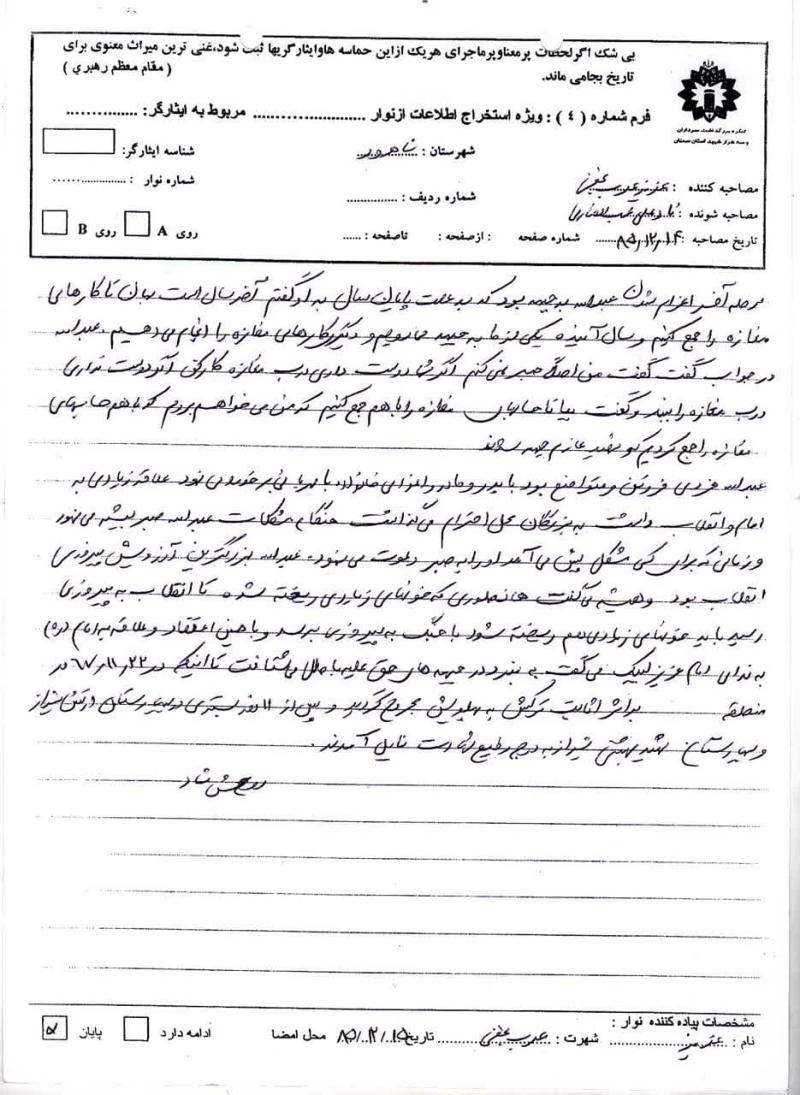 بی شک اگر لحظات پر معنا و پر ماجرای هر یک از این حماسه ها و ایثارگریها ثبت شود، غنی ترین میراث معنوی برای
تاریخ بجا می ماند. ( مقام معظم رهبری )
کنگره بزرگداشت سرداران
و سه هزار شهید استان سمنان
فرم شماره ( ٤ ) : ویژه استخراج اطلاعات از نوار ........................ مربوط به ایثارگر: ................
شهرستان : شاهرود شناسه ایثارگر:
مصاحبه کننده : شماره ردیف : ............... شماره نوار : ...............
مصاحبه شونده :
تاریخ مصاحبه : ۸۵/۱۲/۱۴ شماره صفحه : از صفحه : تا صفحه : ...... روی A روی B
مرحله آخر اعزام شدن عبدالله به جبهه بود که به علت پایان سال به او گفتم آخر سال است بمان تا کارهای
مغازه را جمع کنیم و سال آینده یکی از ما به جبهه می رویم و دیگری کارهای مغازه را انجام می دهیم. عبدالله
در جواب گفت گفت من اصلاً صبر نمی کنم اگر شما دوست داری درب مغازه کار کن اگر دوست نداری
درب مغازه را ببند و گفت بیا تا حسابهای مغازه را با هم جمع کنیم که من می خواهم بروم که با هم حسابهای
مغازه را جمع کردیم که شهید عازم جبهه شدند
عبدالله فردی فروتن و متواضع بود با پدر و مادر و اعضای خانواده با مهربانی برخورد می نمود علاقه زیادی به
امام و انقلاب داشت به بزرگان محل احترام می گذاشت هنگام مشکلات عبدالله صبر پیشه می نمود
و زمانی که برای کسی مشکل پیش می آمد او را به صبر دعوت می نمود. عبدالله بزرگترین آرزویش پیروزی
انقلاب بود و همیشه می گفت همانطوری که خونهای زیادی ریخته شده تا انقلاب به پیروزی
رسید باید خونهای زیادی هم ریخته شود تا جنگ به پیروزی برسد و با همین اعتقاد و علاقه به امام (ره)
به ندای امام عزیز لبیک می گفت به نبرد در جبهه های حق علیه باطل می شتافت تا اینکه در ۶۷/۱۱/۲۲ در
منطقه بر اثر اثابت ترکش به پهلویش مجروح گردید و پس از ۱۱ روز بستری در بیمارستان ارتش شیراز
و بیمارستان شهید بهشتی شیراز به درجه رفیع شهادت نایل آمدند.
روحش شاد
مشخصات پیاده کننده نوار :
نام : شهرت : تاریخ ۸۵/۱۲/۱۵ محل امضا ادامه دارد پایان